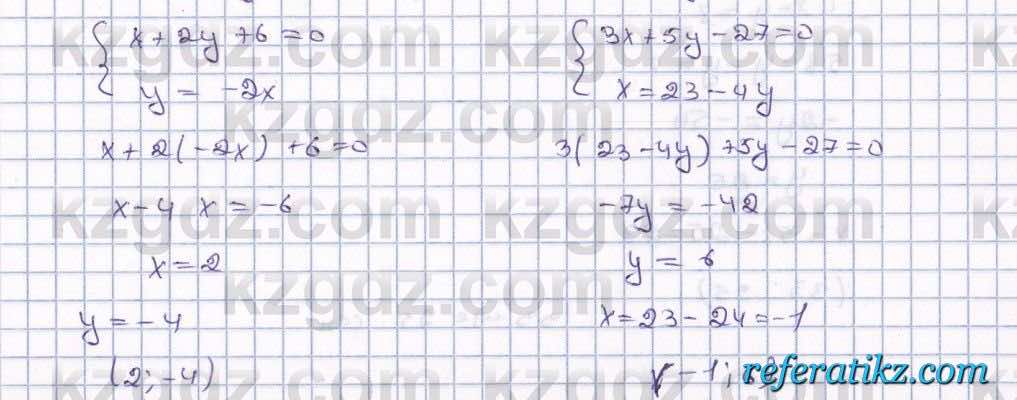 { x + 2y + 6 = 0
y = -2x
x + 2(-2x) + 6 = 0
x - 4x = -6
x = 2
y = -4
(2; -4)
{ 3x + 5y - 27 = 0
x = 23 - 4y
3(23 - 4y) + 5y - 27 = 0
-7y = -42
y = 6
x = 23 - 24 = -1
(-1;
kzgdz.com
kzgdz.com
kzgdz.com
kzgdz.com
kzgdz.com
kzgdz.com
referatikz.com